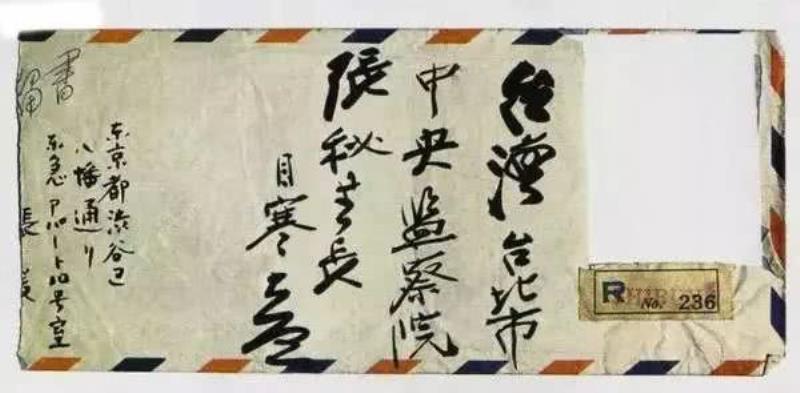 台灣台北市
中央監察院
張秘書長
目寒
書留
東京都渋谷区
八幡通り
東急アパート 号室
R
No. 236